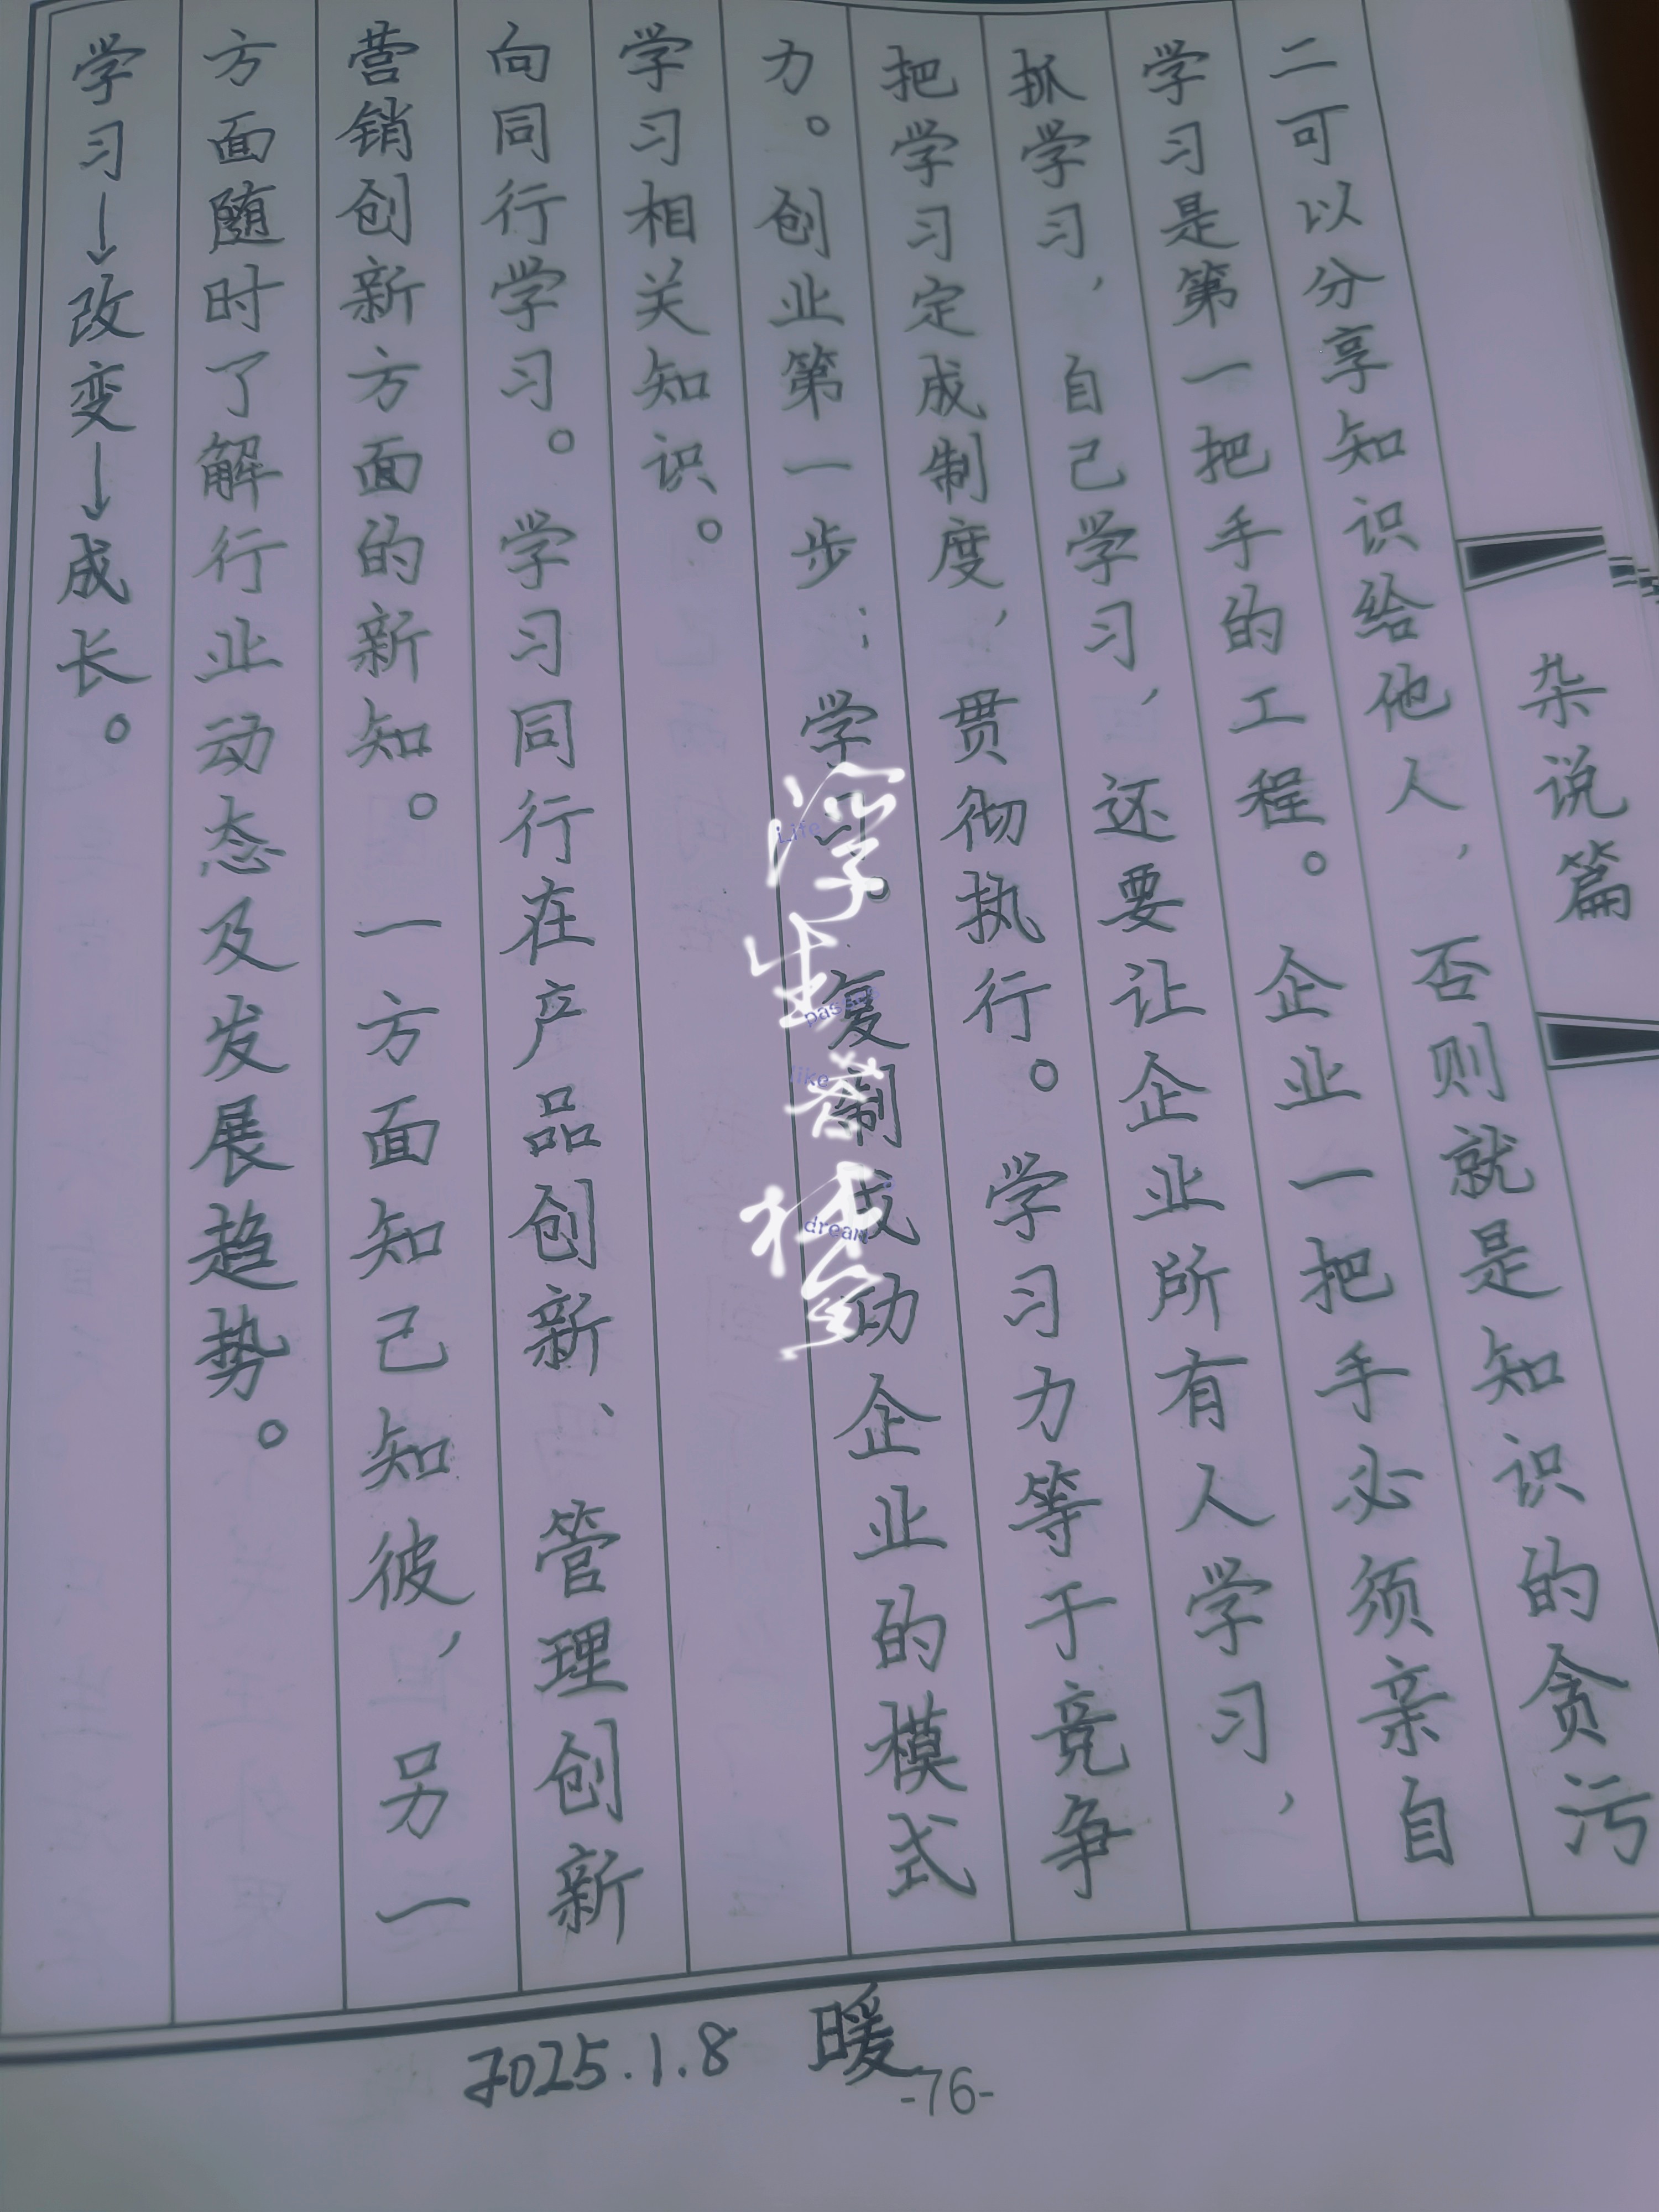 杂说篇
二可以分享知识给他人，否则就是知识的贪污
学习是第一把手的工程。企业一把手必须亲自
抓学习，自己学习，还要让企业所有人学习，
把学习定成制度，贯彻执行。学习力等于竞争
力。创业第一步；学习。复制成功企业的模式
学习相关知识。
向同行学习。学习同行在产品创新、管理创新
营销创新方面的新知。一方面知己知彼，另一
方面随时了解行业动态及发展趋势。
学习↓改变↓成长。
2025.1.8 暖
-76-
浮生若梦
Life
like
dream